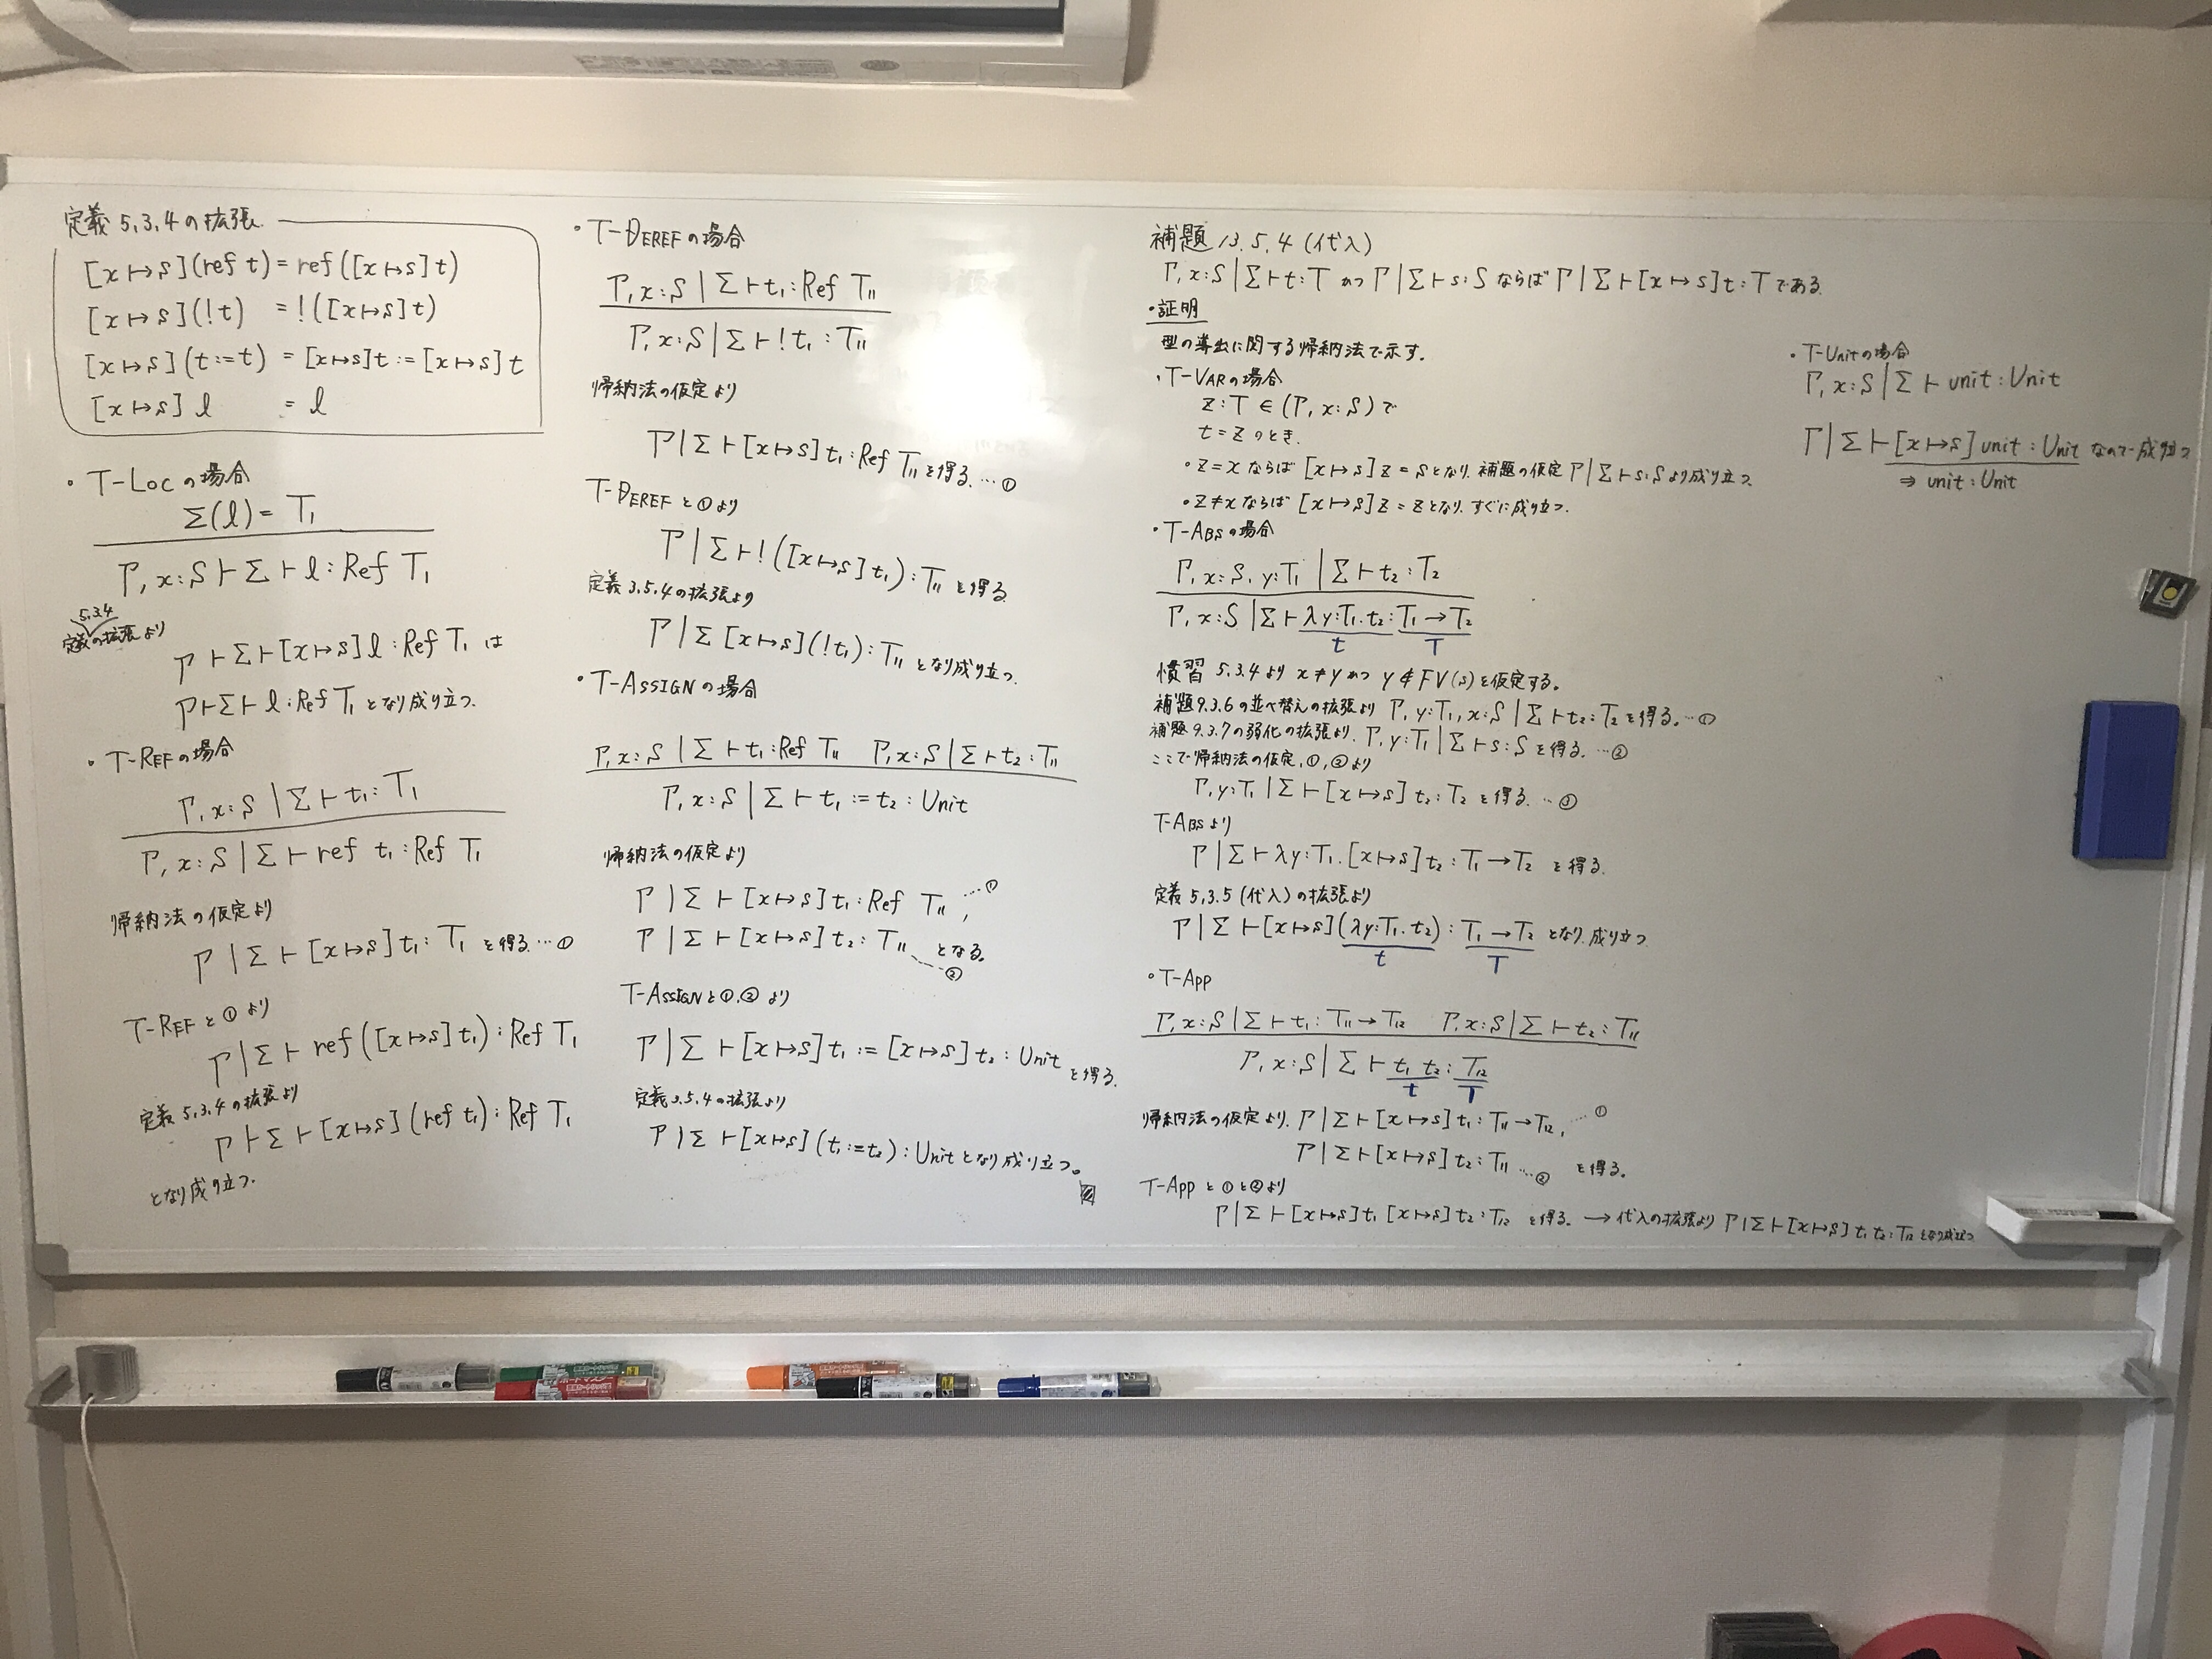 定義 5.3.4 の拡張
[x↦s](ref t) = ref([x↦s]t)
[x↦s](!t) = !([x↦s]t)
[x↦s](t:=t) = [x↦s]t := [x↦s]t
[x↦s] l = l
・T-LOC の場合
Σ(l) = T₁
Γ, x:S ⊢ Σ ⊢ l : Ref T₁
5.3.4
定義の拡張より
Γ ⊢ Σ ⊢ [x↦s] l : Ref T₁ は
Γ ⊢ Σ ⊢ l : Ref T₁ となり成り立つ.
・T-REF の場合
Γ, x:S | Σ ⊢ t₁ : T₁
Γ, x:S | Σ ⊢ ref t₁ : Ref T₁
帰納法の仮定より
Γ | Σ ⊢ [x↦s] t₁ : T₁ を得る. … ①
T-REF と ① より
Γ | Σ ⊢ ref([x↦s] t₁) : Ref T₁
定義 5.3.4 の拡張より
Γ ⊢ Σ ⊢ [x↦s](ref t₁) : Ref T₁
となり成り立つ.
・T-DEREF の場合
Γ, x:S | Σ ⊢ t₁ : Ref T₁₁
Γ, x:S | Σ ⊢ ! t₁ : T₁₁
帰納法の仮定より
Γ | Σ ⊢ [x↦s] t₁ : Ref T₁₁ を得る. … ①
T-DEREF と ① より
Γ | Σ ⊢ ! ([x↦s] t₁) : T₁₁ を得る.
定義 3.5.4 の拡張より
Γ | Σ [x↦s](!t₁) : T₁₁ となり成り立つ.
・T-ASSIGN の場合
Γ, x:S | Σ ⊢ t₁ : Ref T₁₁ Γ, x:S | Σ ⊢ t₂ : T₁₁
Γ, x:S | Σ ⊢ t₁ := t₂ : Unit
帰納法の仮定より
Γ | Σ ⊢ [x↦s] t₁ : Ref T₁₁ , … ①
Γ | Σ ⊢ [x↦s] t₂ : T₁₁ となる. … ②
T-ASSIGN と ①, ② より
Γ | Σ ⊢ [x↦s] t₁ := [x↦s] t₂ : Unit を得る.
定義 3.5.4 の拡張より
Γ | Σ ⊢ [x↦s](t₁:=t₂) : Unit となり成り立つ。
補題 13.5.4 (代入)
Γ, x:S | Σ ⊢ t:T かつ Γ | Σ ⊢ s:S ならば Γ | Σ ⊢ [x↦s] t : T である.
・証明
型の導出に関する帰納法で示す.
・T-VAR の場合
z:T ∈ (Γ, x:S) で
t = z のとき.
・z = x ならば [x↦s] z = s となり, 補題の仮定 Γ | Σ ⊢ s:S より成り立つ.
・z ≠ x ならば [x↦s] z = z となり, すぐに成り立つ.
・T-ABS の場合
Γ, x:S, y:T₁ | Σ ⊢ t₂ : T₂
Γ, x:S | Σ ⊢ λy:T₁. t₂ : T₁→T₂
t T
慣習 5.3.4 より x ≠ y かつ y ∉ FV(s) を仮定する.
補題 9.3.6 の並べ替えの拡張より Γ, y:T₁, x:S | Σ ⊢ t₂ : T₂ を得る. … ①
補題 9.3.7 の弱化の拡張より, Γ, y:T₁ | Σ ⊢ s : S を得る. … ②
ここで帰納法の仮定, ①, ② より
Γ, y:T₁ | Σ ⊢ [x↦s] t₂ : T₂ を得る. … ③
T-ABS より
Γ | Σ ⊢ λy:T₁. [x↦s] t₂ : T₁→T₂ を得る.
定義 5.3.5 (代入) の拡張より
Γ | Σ ⊢ [x↦s](λy:T₁. t₂) : T₁→T₂ となり, 成り立つ
t T
・T-APP
Γ, x:S | Σ ⊢ t₁ : T₁₁→T₁₂ Γ, x:S | Σ ⊢ t₂ : T₁₁
Γ, x:S | Σ ⊢ t₁ t₂ : T₁₂
t T
帰納法の仮定より, Γ | Σ ⊢ [x↦s] t₁ : T₁₁→T₁₂, … ①
Γ | Σ ⊢ [x↦s] t₂ : T₁₁ … ② を得る.
T-APP と ① と ② より
Γ | Σ ⊢ [x↦s] t₁ [x↦s] t₂ : T₁₂ を得る. → 代入の拡張より Γ | Σ ⊢ [x↦s] t₁ t₂ : T₁₂ となり成り立つ
・T-Unit の場合
Γ, x:S | Σ ⊢ unit : Unit
Γ | Σ ⊢ [x↦s] unit : Unit なので成り立つ
⇒ unit : Unit